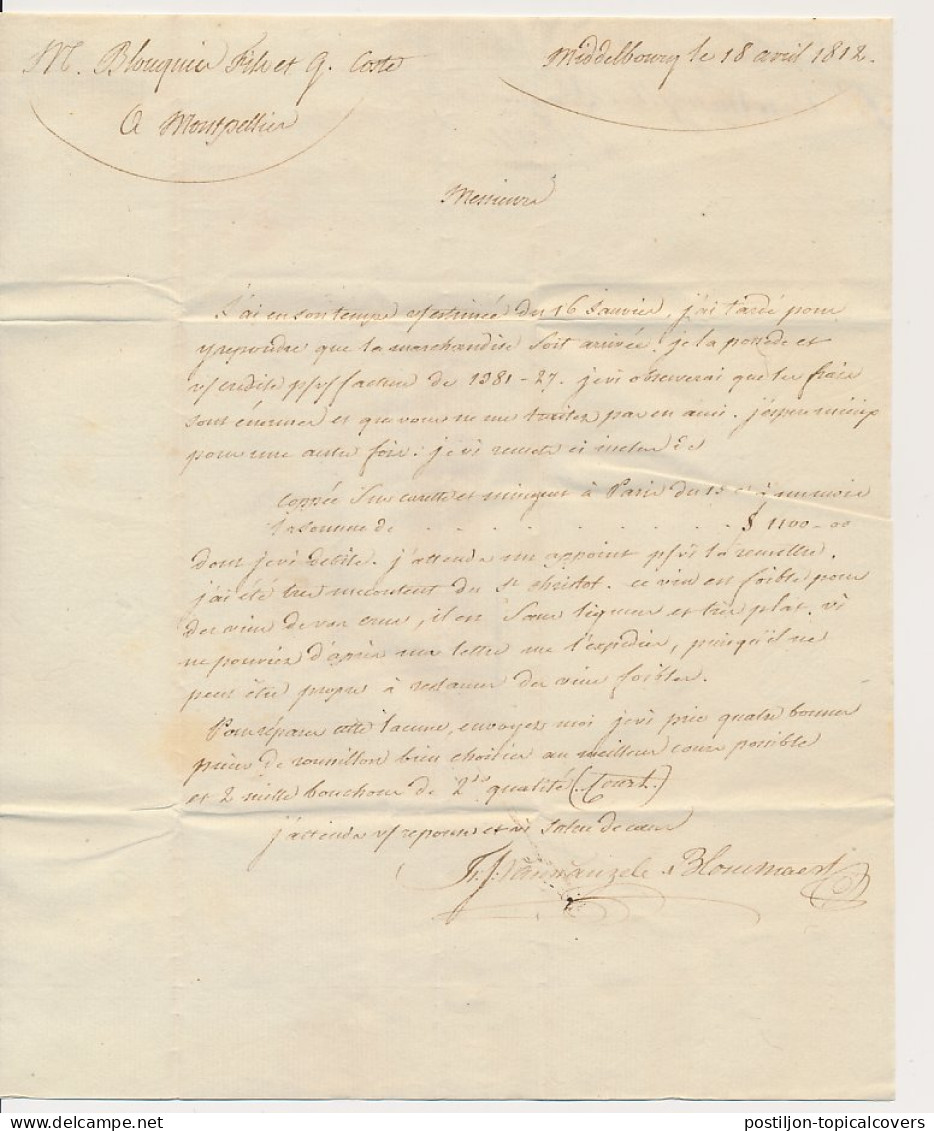 M. Blouquier Fils et G. Coste
Middelbourg le 18 avril 1812.
A Montpellier
Messieurs
J'ai en son temps v/ estimée du 16 Janvier, j'ai tardé pour
y repondre que la marchandise soit arrivée. je la possede et
v/ credite p/ v/ facture de 1381-27. je vs observerai que les frais
sont énormes et que vous ne me traitez pas en ami. j'espere mieux
pour une autre fois: je vs remets ci inclus
à Paris du 15
la somme de . . . . . . . . . . . . $ 1100-00
dont je vs debite. j'attends un appoint p/ vs la remettre.
j'ai été tres mecontent du St Christol. ce vin est foible pour
des vins de vos crus, il est sans liqueur et très plat. vs
ne pouviez d'après ma lettre me l'expedier, puisqu'il ne
peut être propre à restaurer des vins foibles.
Pour réparer cette lacune, envoyez moi je vs prie quatre bonnes
pieces de roussillon bien choisies au meilleur cours possible
et 2 mille bouchons de 2de qualité (Courts.)
j'attends v/ reponse et vs salue de cœur
Blommaert
postiljon-topicalcovers